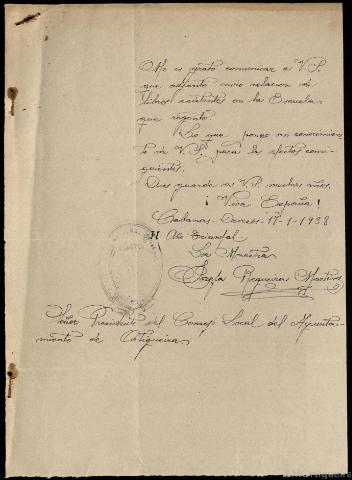 Me es grato comunicar a V.S.
que adjunto envio relacion de
libros existentes en la Escuela
que regento.
Lo que pongo en conocimien-
to de V.S. para los efectos consi-
guientes.
Dios guarde a V.S. muchos años.
¡ Viva España !
Cabanas- 17-1-1938
II Año Triunfal
La Maestra
Regueira
Señor Presidente del Consejo Local del Ayunta-
miento de Ortigueira.